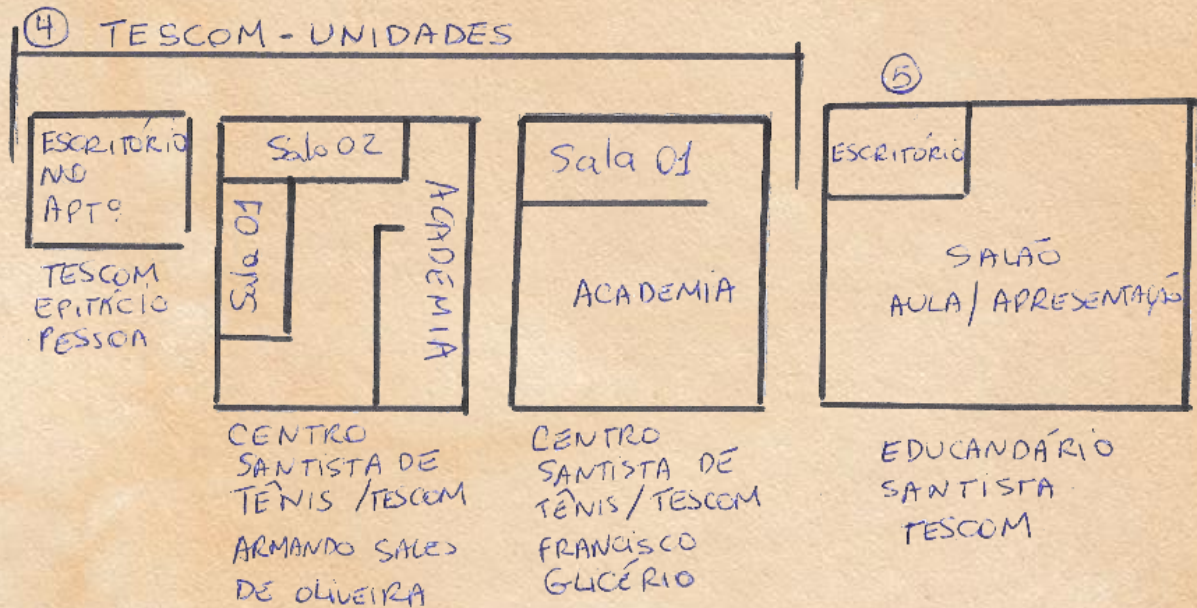 ④ TESCOM - UNIDADES
ESCRITÓRIO
NO
APTº
TESCOM
EPITÁCIO
PESSOA
Sala 02
Sala 01
ACADEMIA
CENTRO
SANTISTA DE
TÊNIS / TESCOM
ARMANDO SALES
DE OLIVEIRA
Sala 01
ACADEMIA
CENTRO
SANTISTA DE
TÊNIS / TESCOM
FRANCISCO
GLICÉRIO
⑤
ESCRITÓRIO
SALÃO
AULA / APRESENTAÇÃO
EDUCANDÁRIO
SANTISTA
TESCOM